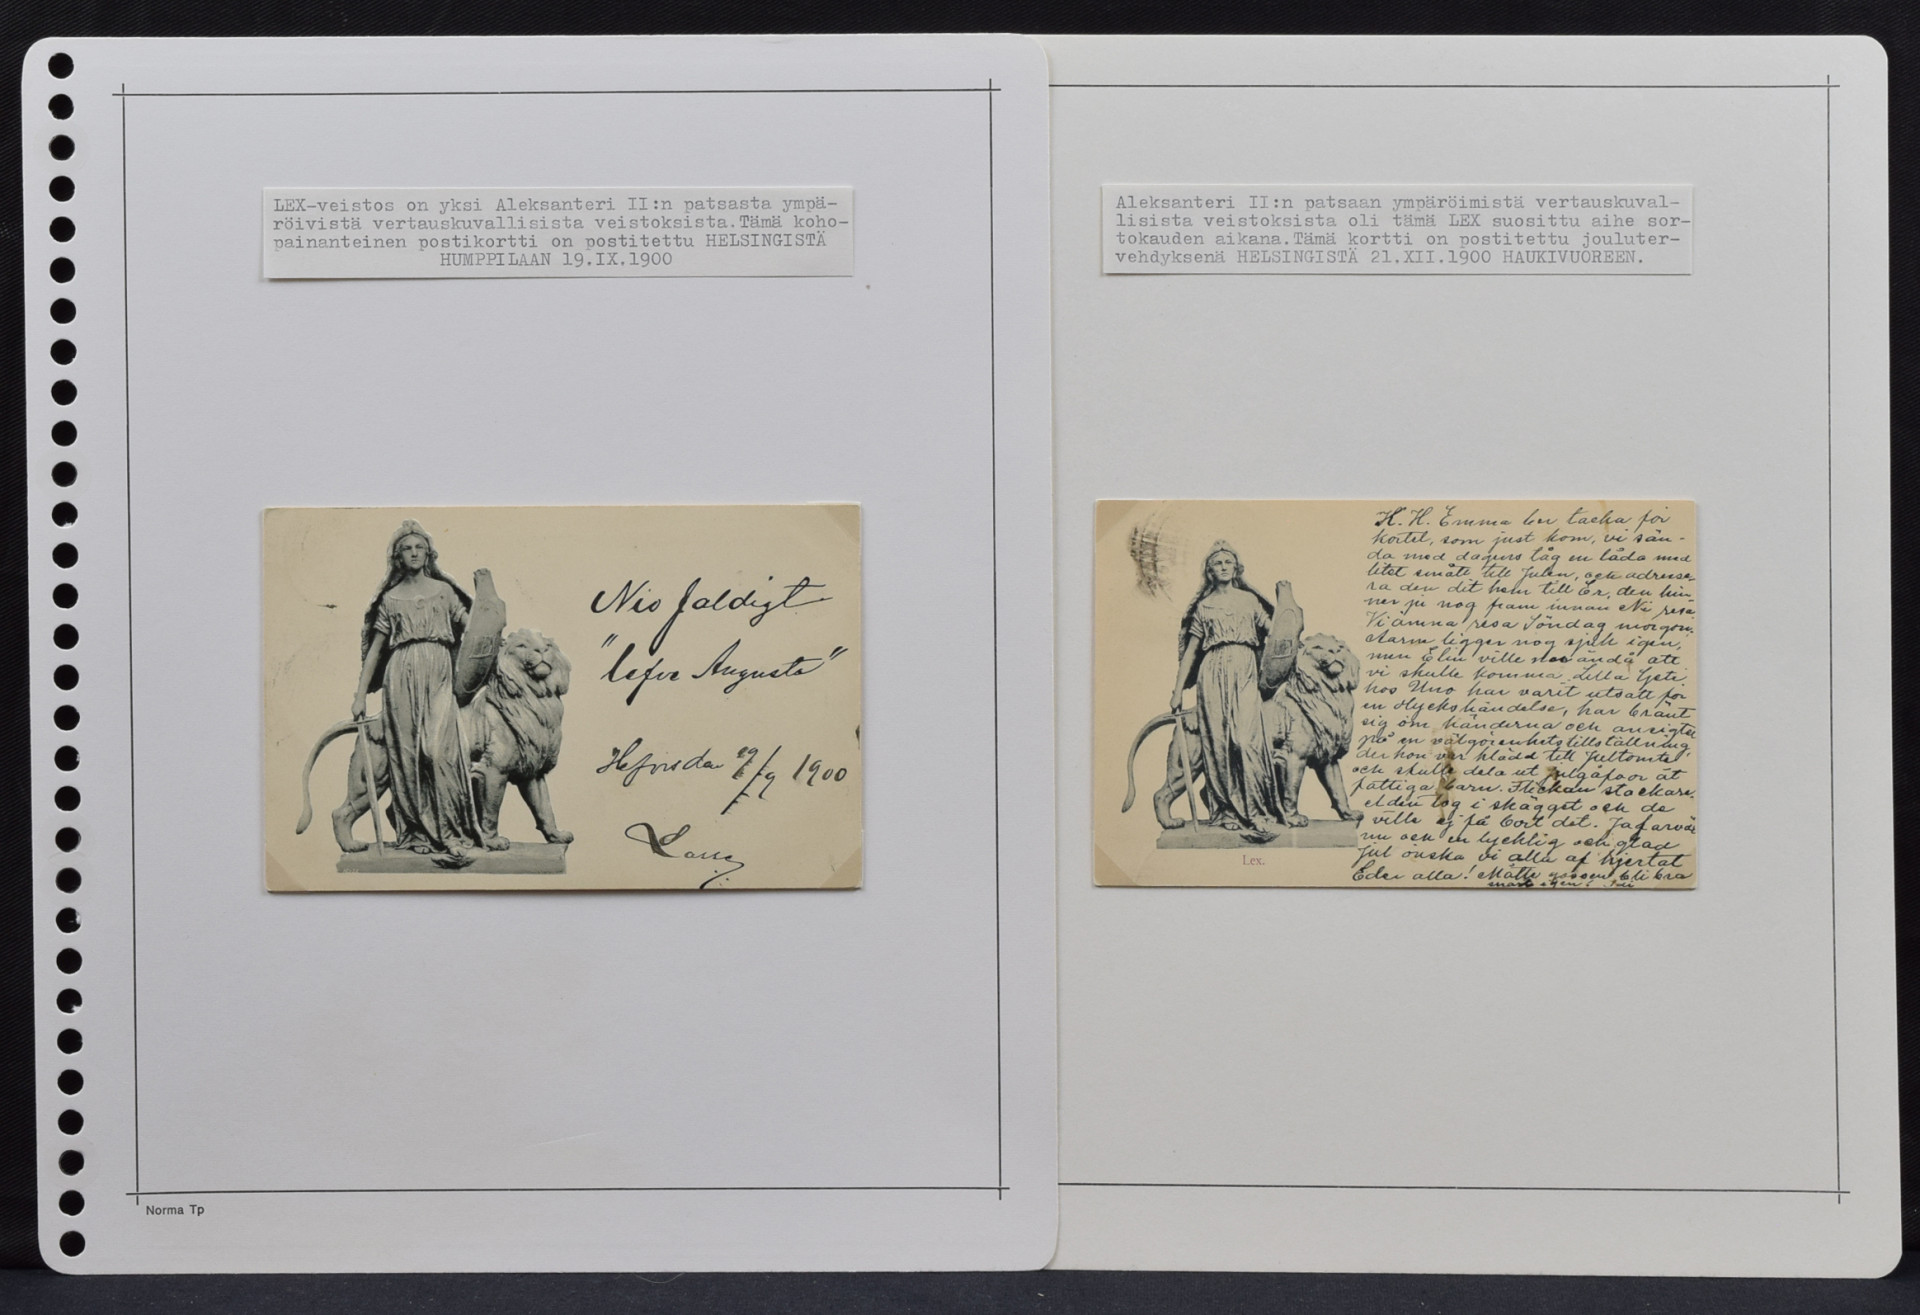 LEX-veistos on yksi Aleksanteri II:n patsasta ympä-
röivistä vertauskuvallisista veistoksista.Tämä koho-
painanteinen postikortti on postitettu HELSINGISTÄ
HUMPPILAAN 19.IX.1900
Nio faldigt
"lefve Augusta"
Hfors den 19/9 1900
Lasse
Norma Tp
Aleksanteri II:n patsaan ympäröimistä vertauskuval-
lisista veistoksista oli tämä LEX suosittu aihe sor-
tokauden aikana.Tämä kortti on postitettu jouluter-
vehdyksenä HELSINGISTÄ 21.XII.1900 HAUKIVUOREEN.
K. H. Emma ber tacka för
kortet, som just kom, vi sän-
da med dagens tåg en låda med
litet smått till Julen, och adresse-
ra den dit hem till Er, den hin-
ner ju nog fram innan Ni resa
Vi ämna resa Söndag morgon.
ligger nog sjuk igen,
men Elin ville ändå att
vi skulle komma. Lilla
hos Uno har varit utsatt för
en olyckshändelse, har bränt
sig om händerna och ansigtet
på en välgörenhetstillställning,
der hon var klädd till Jultomte
och skulle dela ut julgåfvor åt
fattiga barn. Flickan stackare,
elden tog i skägget och de
ville ej få bort det. Ja farväl
nu och en lycklig och glad
Jul önska vi alla af hjertat
Eder alla! Måtte gossen bli bra
snart igen!
Lex.